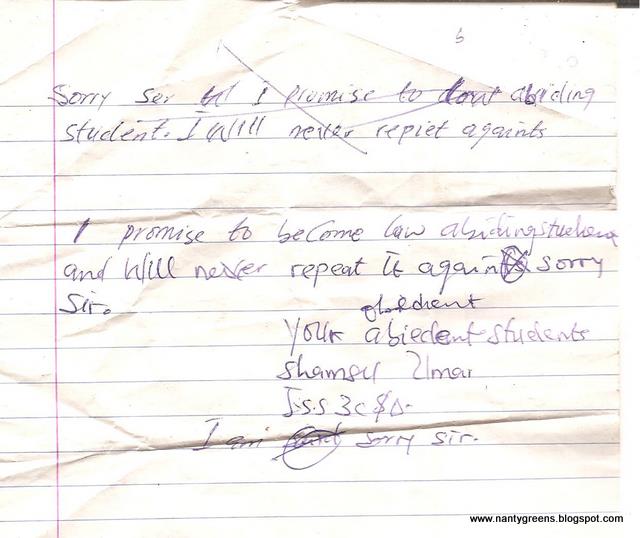 6
Sorry ser I promise to abiding
student. I Will never repiet againts
I promise to become law abiding
and Will never repeat it again sorry
Sir.
obedient
your abiedent students
Shamsu Umar
J.S.S 3c
I am sorry sir.
www.nantygreens.blogspot.com